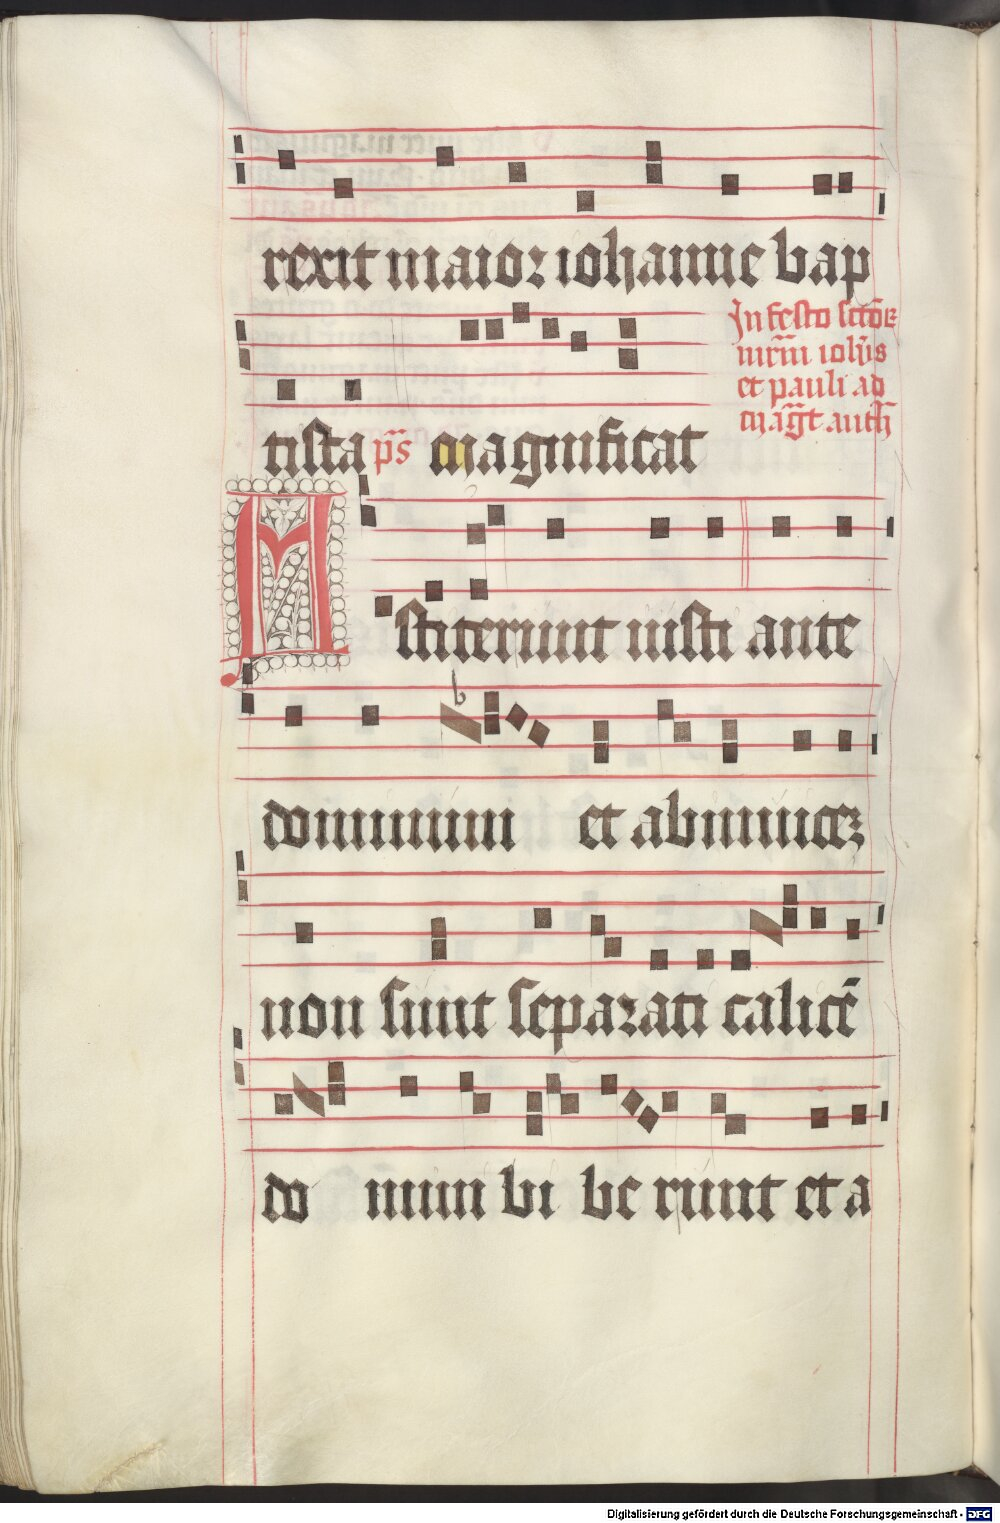 rexit maior iohanne bap
In festo sctōꝝ
mr̄m ioh̄is
et pauli ad
m̄agt anth̄
tista p̄s magnificat
Astiterunt iusti ante
dominum et abinuicez
non sunt separati calicē
domini biberunt et a
Digitalisierung gefördert durch die Deutsche Forschungsgemeinschaft - DFG